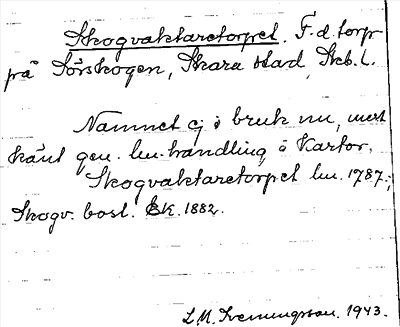 Skogvaktaretorpet. F.d. torp
på Sörskogen, Skara stad, Skb. l.
Namnet ej i bruk nu, mest
känt gen. lm. handling, o kartor.
Skogvaktaretorpet lm. 1787.;
Skogv. bost. EK. 1882.
L.M. Svenungsson. 1943.